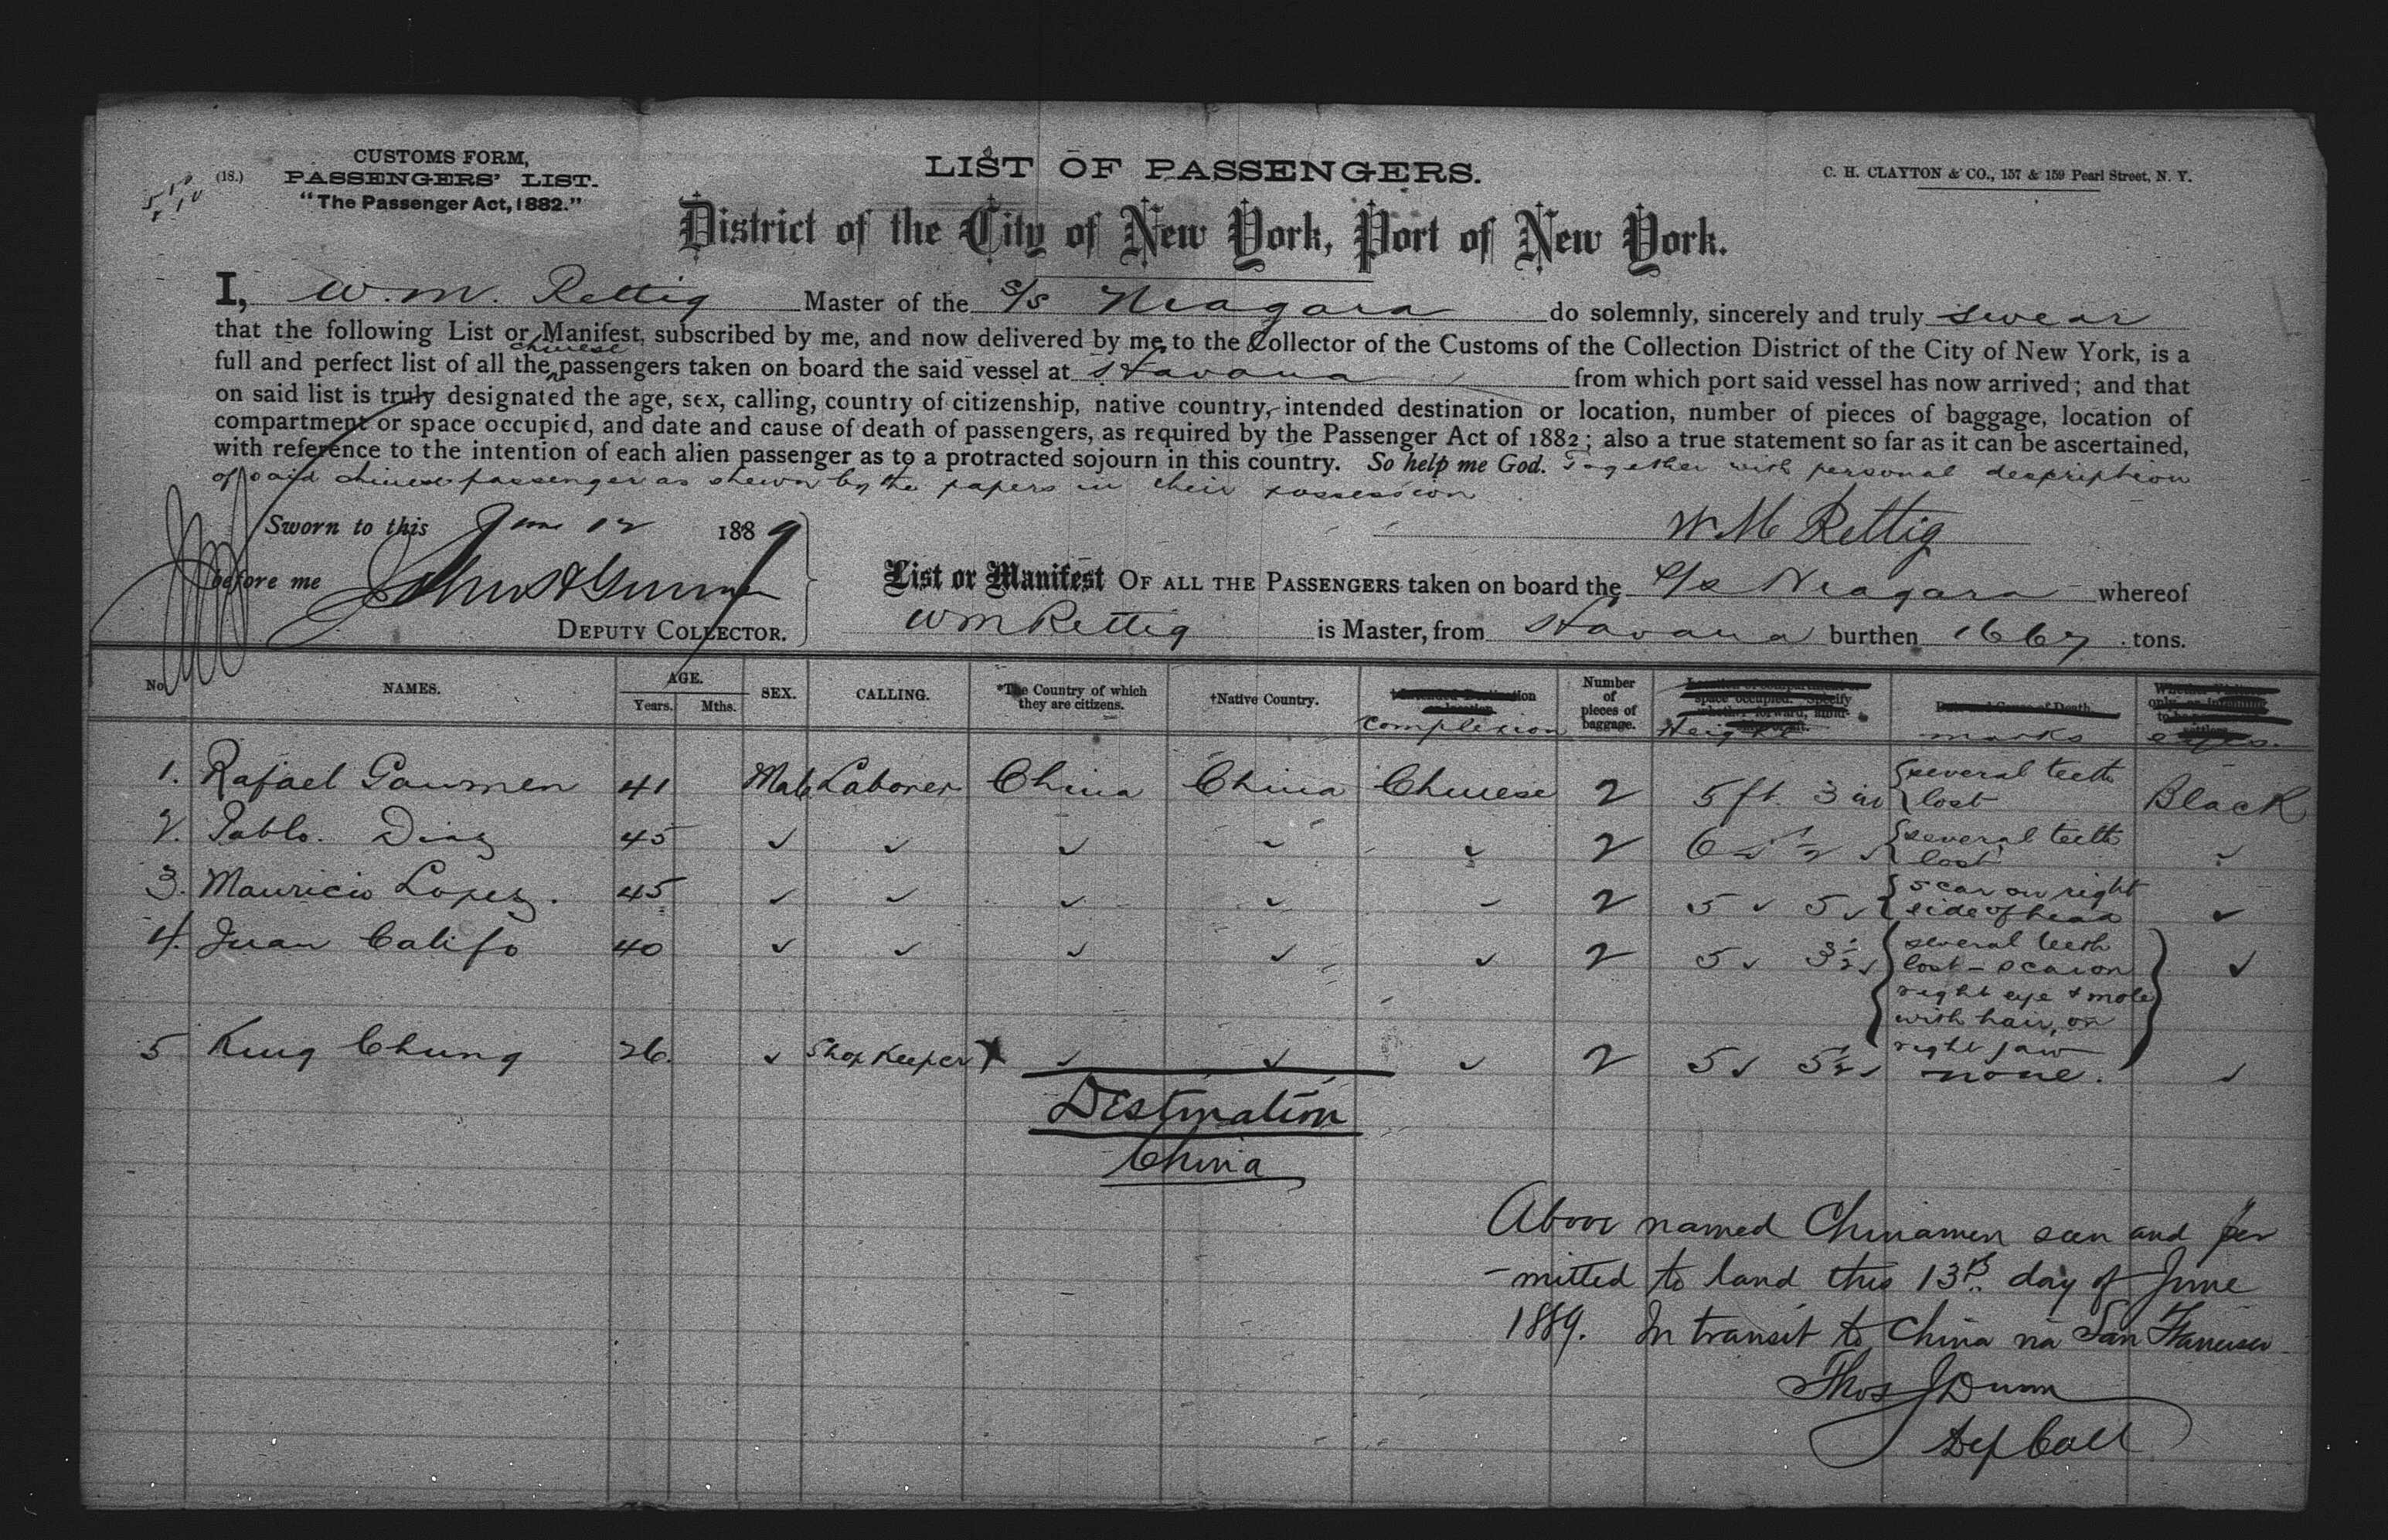 (18.)
CUSTOMS FORM,
PASSENGERS' LIST.
"The Passenger Act, 1882."
LIST OF PASSENGERS.
C. H. CLAYTON & CO., 157 & 159 Pearl Street, N. Y.
District of the City of New York, Port of New York.
I, W. M. Rettig Master of the S/S Niagara do solemnly, sincerely and truly swear
that the following List or Manifest, subscribed by me, and now delivered by me to the Collector of the Customs of the Collection District of the City of New York, is a
full and perfect list of all the chinese passengers taken on board the said vessel at Havana from which port said vessel has now arrived; and that
on said list is truly designated the age, sex, calling, country of citizenship, native country, intended destination or location, number of pieces of baggage, location of
compartment or space occupied, and date and cause of death of passengers, as required by the Passenger Act of 1882; also a true statement so far as it can be ascertained,
with reference to the intention of each alien passenger as to a protracted sojourn in this country. So help me God. Together with personal description
of said chinese passengers as shewn by the papers in their possession
Sworn to this June 12 1889
W. M Rettig
before me
DEPUTY COLLECTOR.
List or Manifest OF ALL THE PASSENGERS taken on board the S/S Niagara whereof
W M Rettig is Master, from Havana burthen 1667 tons.
No. NAMES. AGE. Years. Mths. SEX. CALLING. *The Country of which they are citizens. †Native Country. Complexion Number of pieces of baggage. Height marks eyes.
1. Rafael Gaumen 41 Male Laborer China China Chinese 2 5 ft. 3 in several teeth lost Black
2. Pablo. Diaz 45 ✓ ✓ ✓ ✓ ✓ 2 several teeth lost ✓
3. Mauricio Lopez. 45 ✓ ✓ ✓ ✓ ✓ 2 5 ✓ 5 ✓ scar on right side of head ✓
4. Juan Califo 40 ✓ ✓ ✓ ✓ ✓ 2 5 ✓ 3½ ✓ several teeth lost - scar on right eye & mole with hair, on right jaw ✓
5 King Chung 26. ✓ Shop Keeper ✓ ✓ ✓ 2 5 ✓ 5½ ✓ none. ✓
Destination
China
Above named Chinamen seen and per
-mitted to land this 13th day of June
1889. In transit to China via San Francisco
Thos J Dunn
Dep Coll